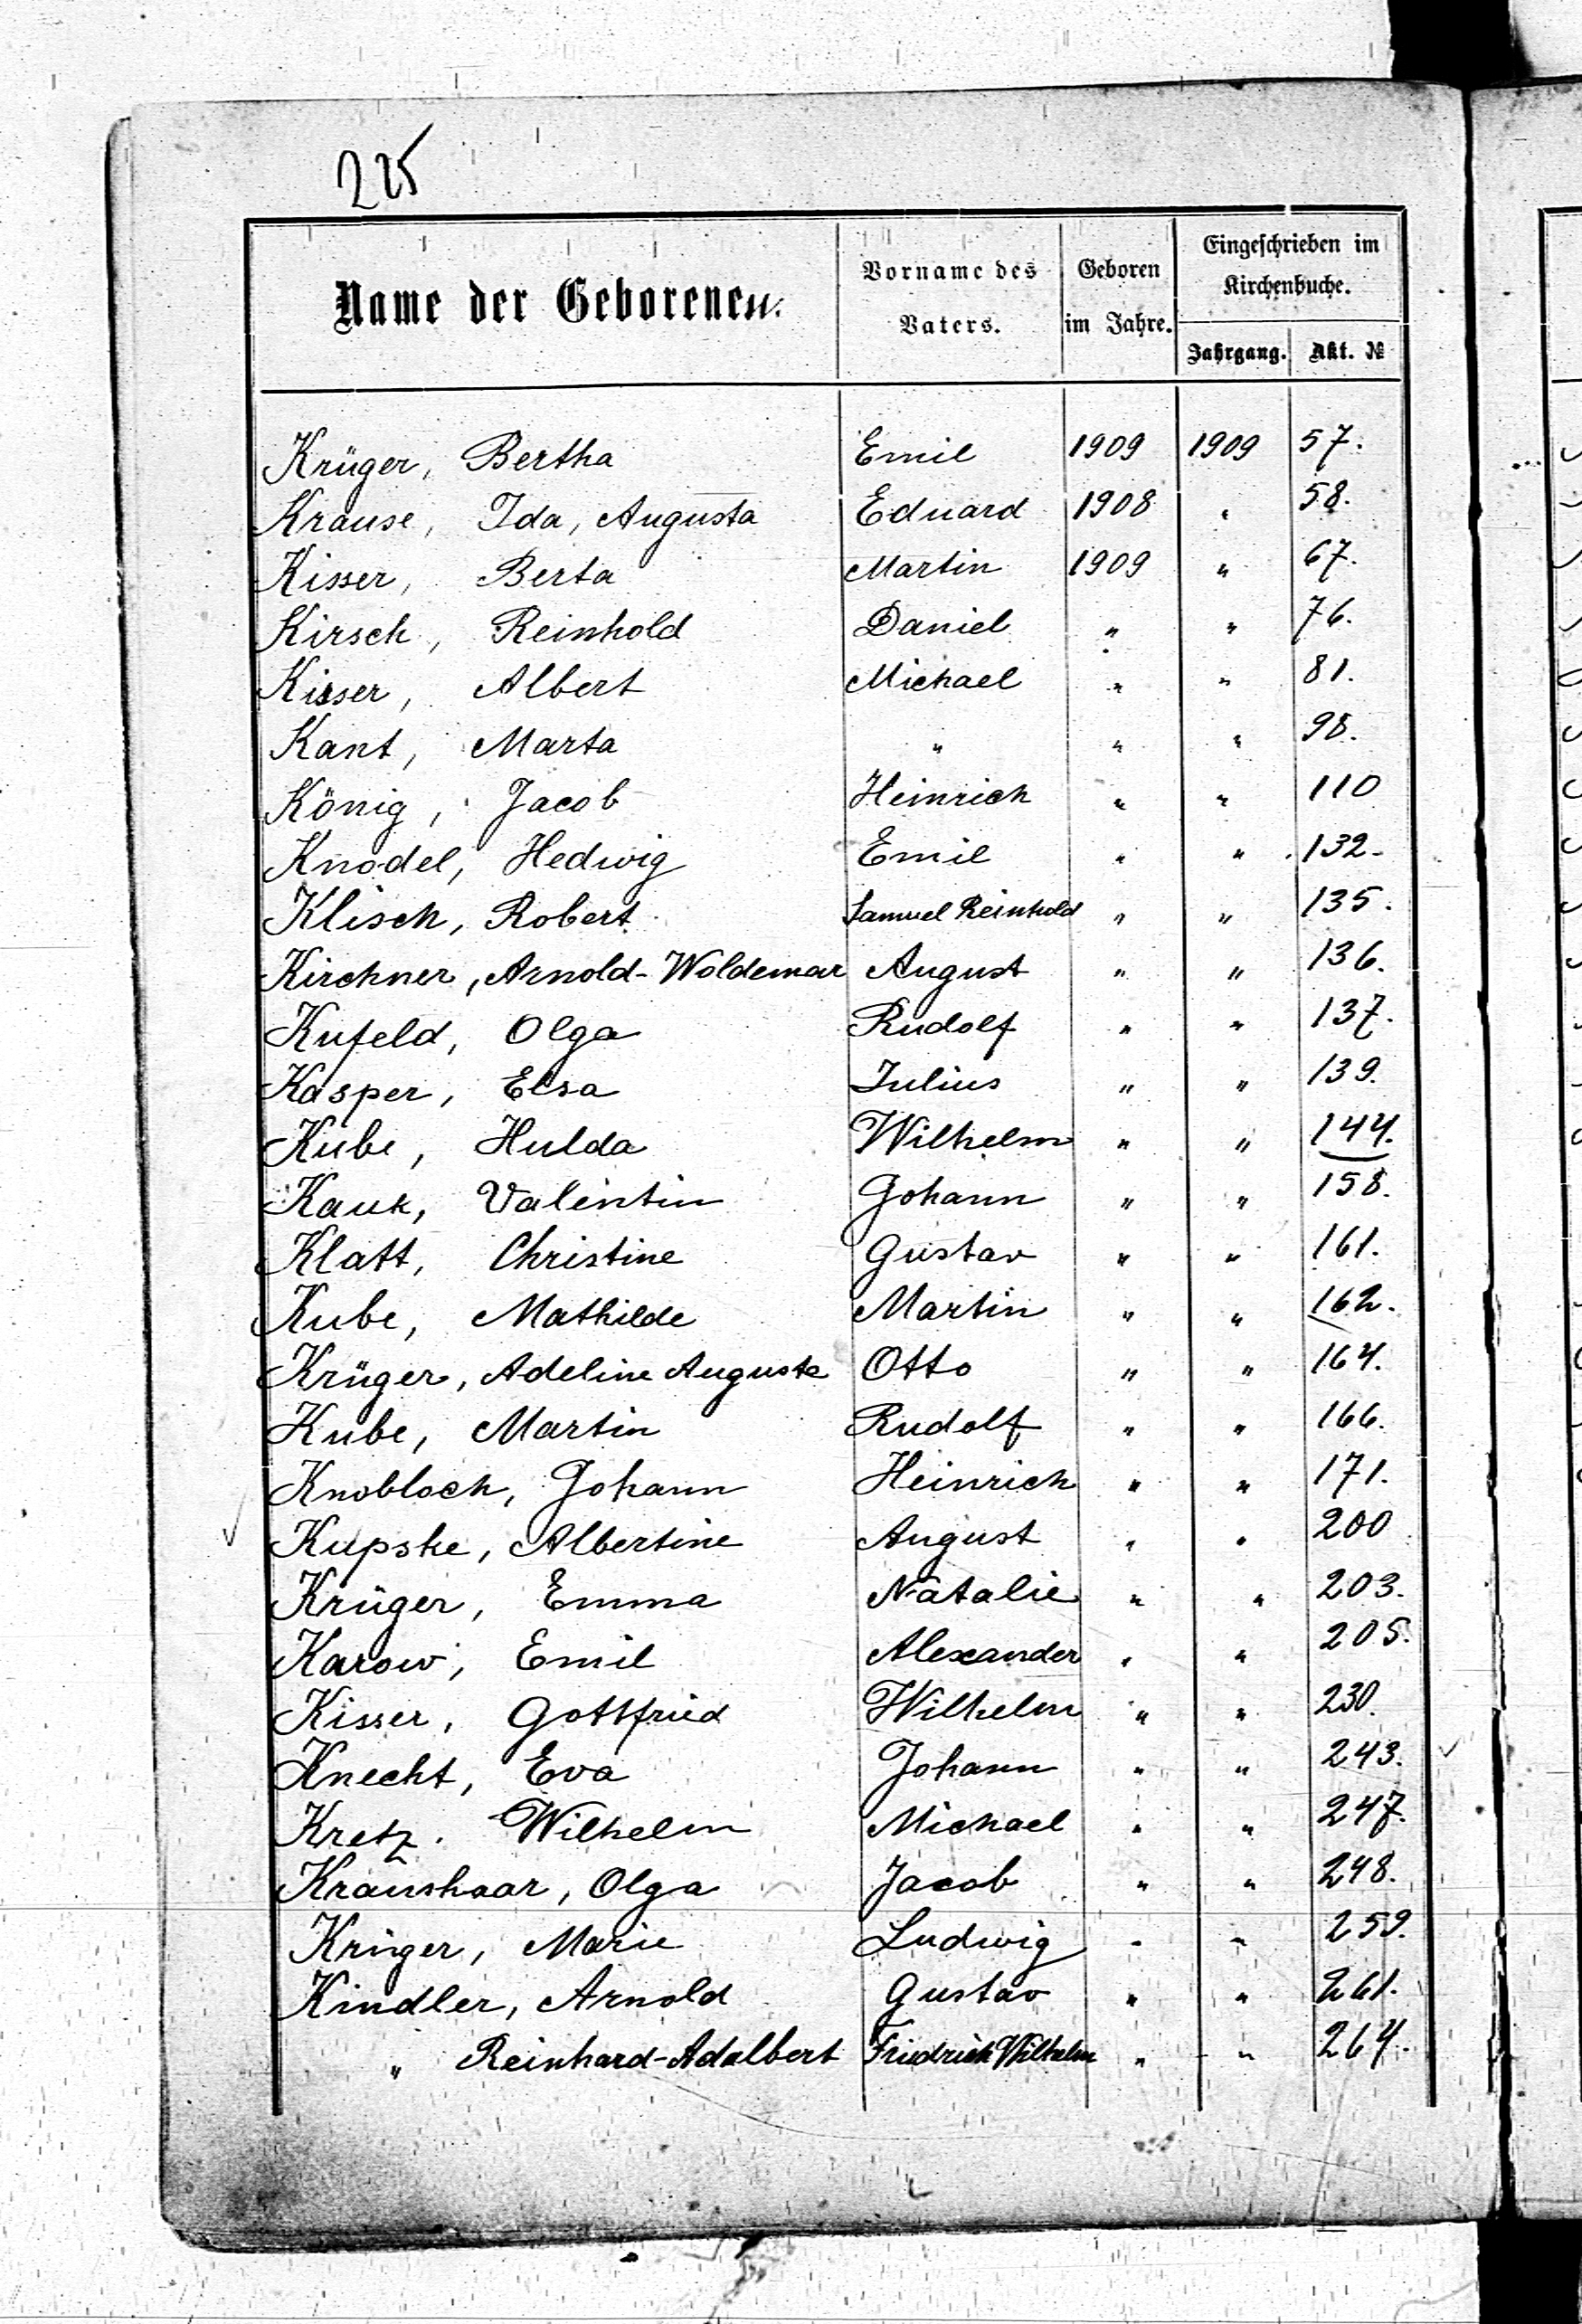 225
Name der Geborenen. Vorname des Vaters. Geboren im Jahre. Eingeschrieben im Kirchenbuche.
Jahrgang. Akt. №
Krüger, Bertha Emil 1909 1909 57.
Krause, Ida, Augusta Eduard 1908 " 58.
Kisser, Berta Martin 1909 " 67.
Kirsch, Reinhold Daniel " " 76.
Kisser, Albert Michael " " 81.
Kant, Marta " " " 98.
König, Jacob Heinrich " " 110
Knodel, Hedwig Emil " " 132.
Klisch, Robert Samuel Reinhold " " 135.
Kirchner, Arnold-Woldemar August " " 136.
Kufeld, Olga Rudolf " " 137.
Kasper, Elsa Julius " " 139.
Kube, Hulda Wilhelm " " 144.
Kauk, Valentin Johann " " 158.
Klatt, Christine Gustav " " 161.
Kube, Mathilde Martin " " 162.
Krüger, Adeline Auguste Otto " " 164.
Kube, Martin Rudolf " " 166.
Knobloch, Johann Heinrich " " 171.
Kupske, Albertine August " " 200
Krüger, Emma Natalie " " 203.
Karow, Emil Alexander " " 205.
Kisser, Gottfried Wilhelm " " 230.
Knecht, Eva Johann " " 243.
Kretz. Wilhelm Michael " " 247.
Kraushaar, Olga Jacob " " 248.
Krüger, Marie Ludwig " " 259.
Kindler, Arnold Gustav " " 261.
" Reinhard-Adalbert Friedrich Wilhelm " " 264.